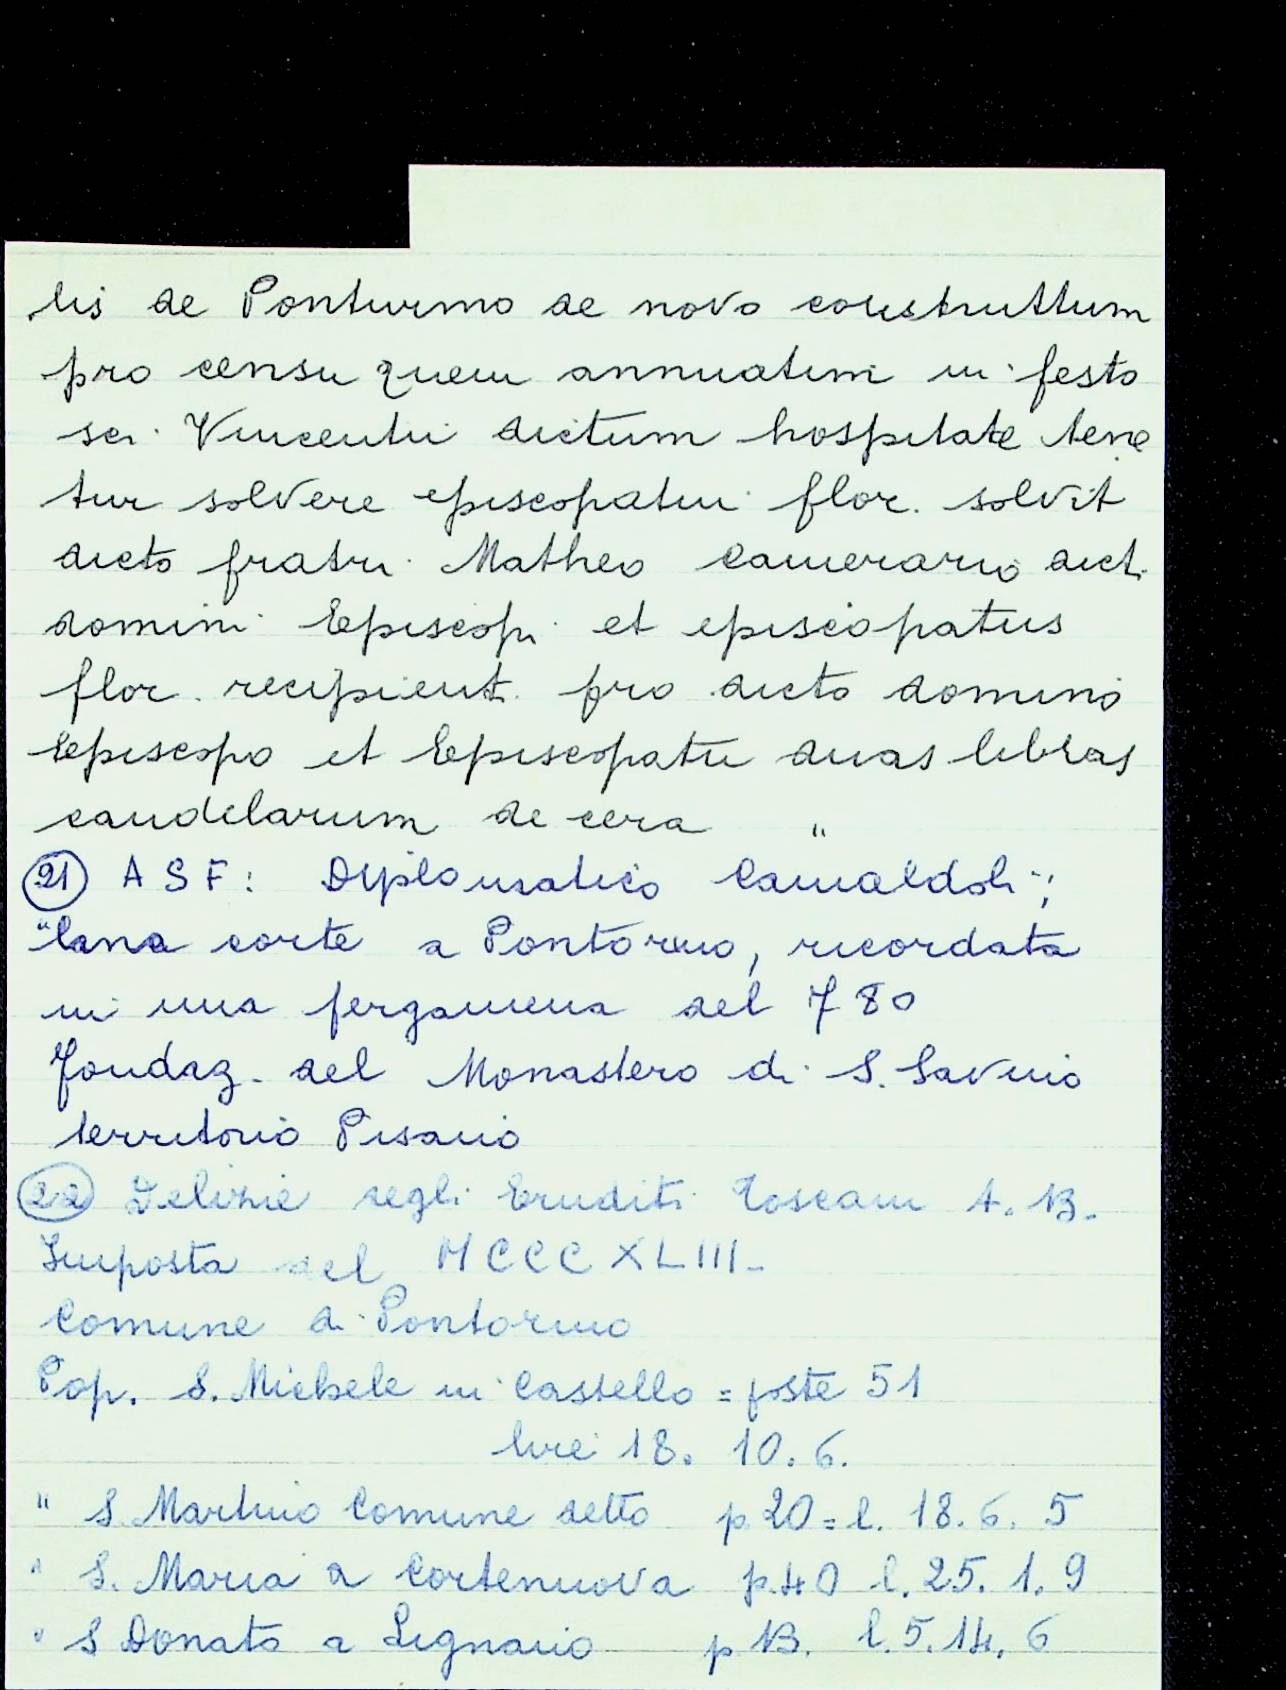 lis de Ponturmo de novo construttum
pro censu quem annuatim in festo
sci. Vincentii dictum hospitale tene
tur solvere episcopatui flor. solvit
dicto fratri Matheo Camerario dict.
domini Episcopi et episcopatus
flor. recipient. pro dicto domino
Episcopo et Episcopatu duas libras
candelarum de cera "
21 A S F: Diplomatico Camaldoli;
"Una corte a Pontormo, ricordata
in una pergamena del 780
Fondaz. del Monastero di S. Savino
territorio Pisano
22 Delizie degli Eruditi Toscani t. 13.
Imposta del MCCCXLIII-
Comune di Pontormo
Pop. S. Michele in Castello = poste 51
lire 18. 10. 6.
" S. Martino Comune detto p. 20 = l. 18. 6. 5
" S. Maria a Cortenuova p. 40 l. 25. 1. 9
" S Donato a Lignano p 13. l. 5. 14. 6